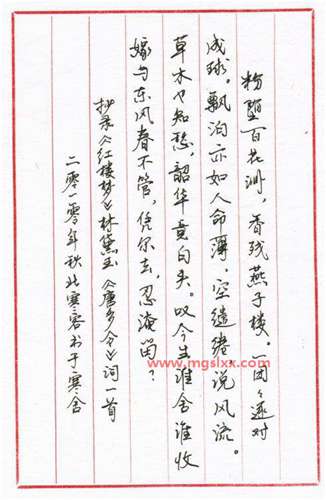 粉堕百花洲,香残燕子楼。一团々逐对
成球。飘泊亦如人命薄,空缱绻说风流。
草木也知愁,韶华竟白头。叹今生谁舍谁收
嫁与东风春不管,凭尔去,忍淹留?
抄录《红楼梦》林黛玉《唐多令》词一首
二零一零年秋寒书于寒舍
www.mgslxx.com